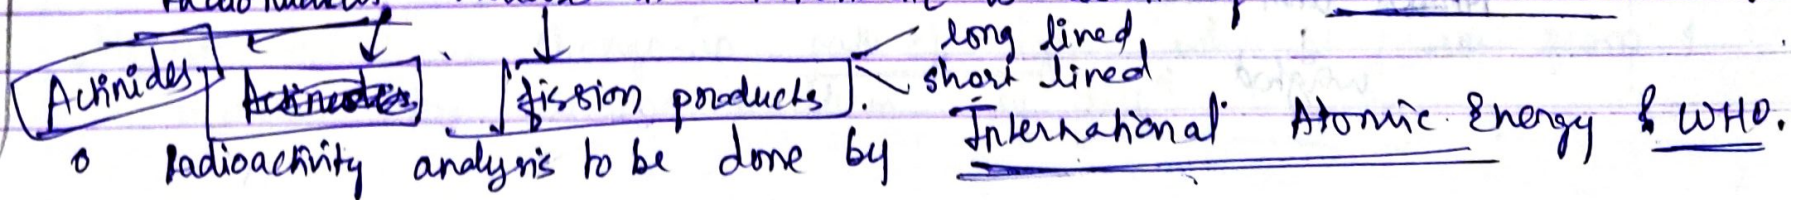 long lived,
Actinides fission products short lived
• Radioactivity analysis to be done by International Atomic Energy & WHO.